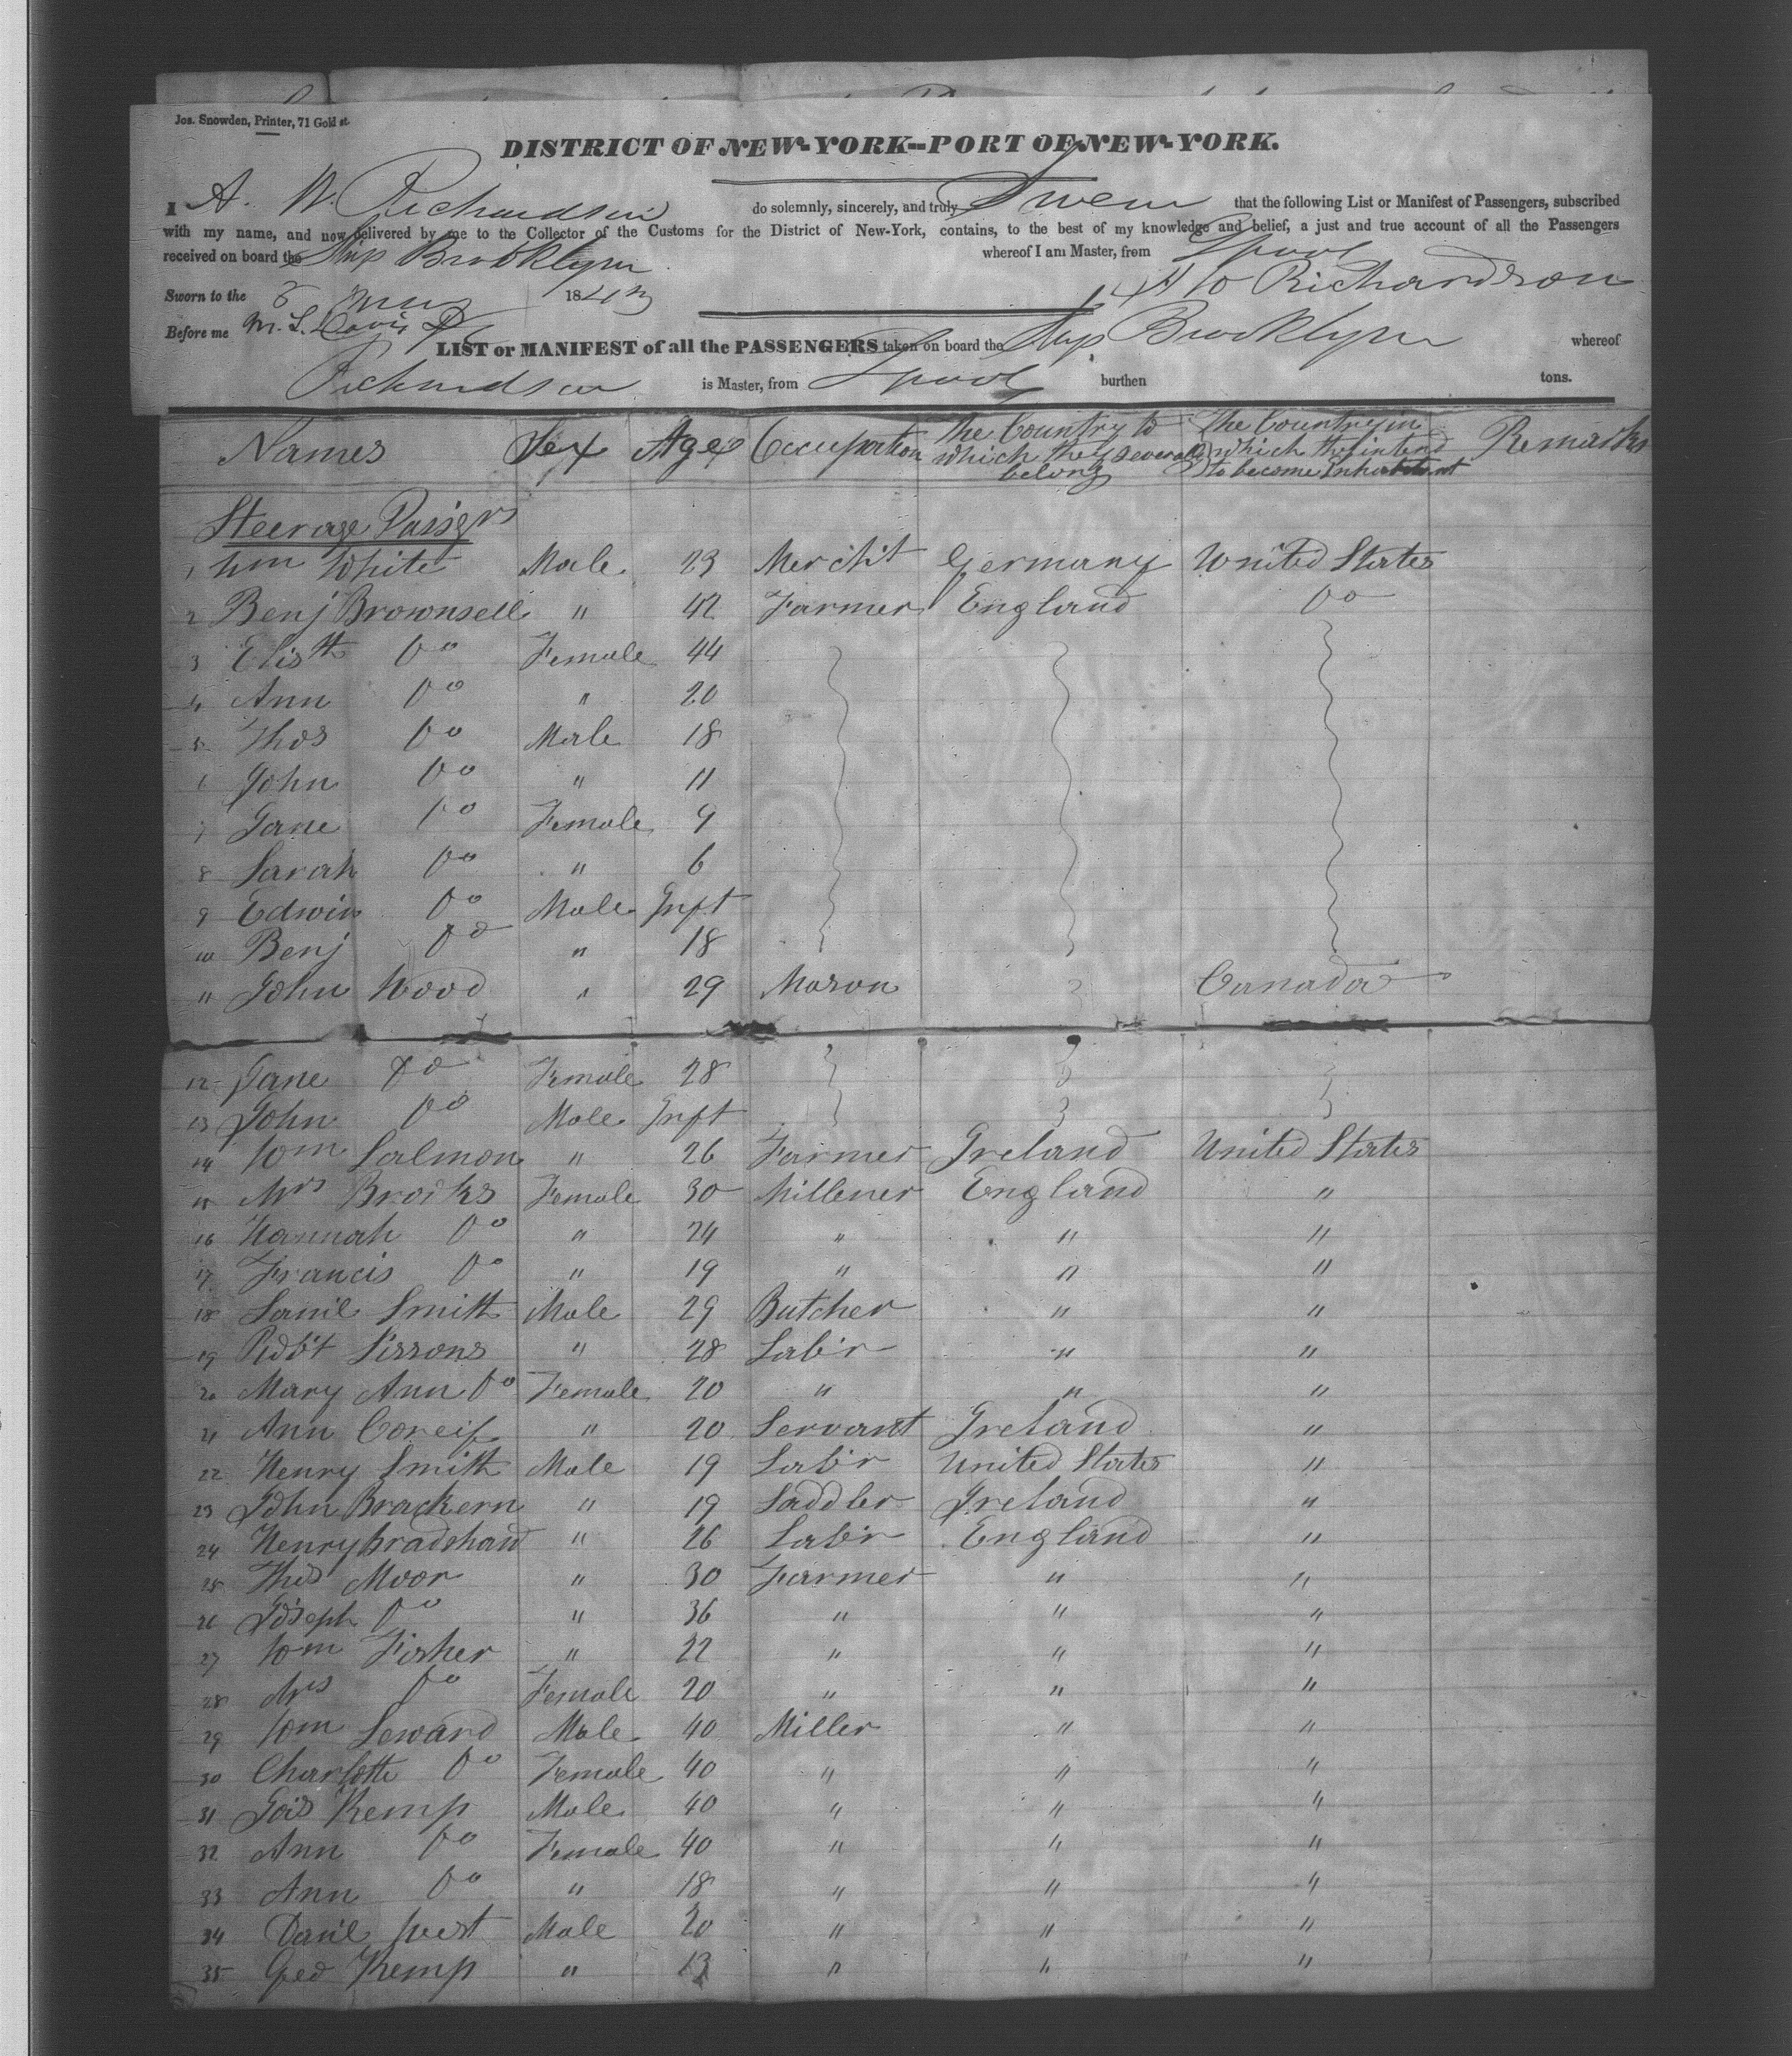 Jos. Snowden, Printer, 71 Gold st.
DISTRICT OF NEW-YORK--PORT OF NEW-YORK.
I A. W. Richardson do solemnly, sincerely, and truly Swear that the following List or Manifest of Passengers, subscribed
with my name, and now delivered by me to the Collector of the Customs for the District of New-York, contains, to the best of my knowledge and belief, a just and true account of all the Passengers
received on board the Ship Brooklyn whereof I am Master, from Lpool
Sworn to the 184 A W Richardson
Before me M. L. Davis
LIST or MANIFEST of all the PASSENGERS taken on board the Ship Brooklyn whereof
Richardson is Master, from Lpool burthen tons.
Names Sex Age Occupation The Country to which they severally belong The Country in which they intend to become Inhabitant Remarks
Steerage Passgrs
1 Wm White Male 23 Mercht Germany United States
2 Benj Brownsell " 42 Farmer England Do
3 Elisth Do Female 44
4 Ann Do " 20
5 Thos Do Male 18
6 John Do " 11
7 Jane Do Female 9
8 Sarah Do " 6
9 Edwin Do Male Inft
10 Benj Do " 18
11 John Wood " 29 Mason Canada
12 Jane Do Female 28
13 John Do Male Inft
14 Wm Salmon " 26 Farmer Ireland United States
15 Mrs Brooks Female 30 Millener England "
16 Hannah Do " 24 " " "
17 Francis Do " 19 " " "
18 Saml Smith Male 29 Butcher " "
19 Robt Sissons " 28 Labr " "
20 Mary Ann Do Female 20 " " "
21 Ann " 20 Servant Ireland "
22 Henry Smith Male 19 Labr United States "
23 John Brackern " 19 Saddler Ireland "
24 Henry Bradshaw " 26 Labr England "
25 Thos Moor " 30 Farmer " "
26 Joseph Do " 36 " " "
27 Wm Fisher " 22 " " "
28 Mrs Do Female 20 " " "
29 Wm Seward Male 40 Miller " "
30 Charlotte Do Female 40 " " "
31 Jos Kemp Male 40 " " "
32 Ann Do Female 40 " " "
33 Ann Do " 18 " " "
34 Danl West Male 20 " " "
35 Geo Kemp " 13 " " "